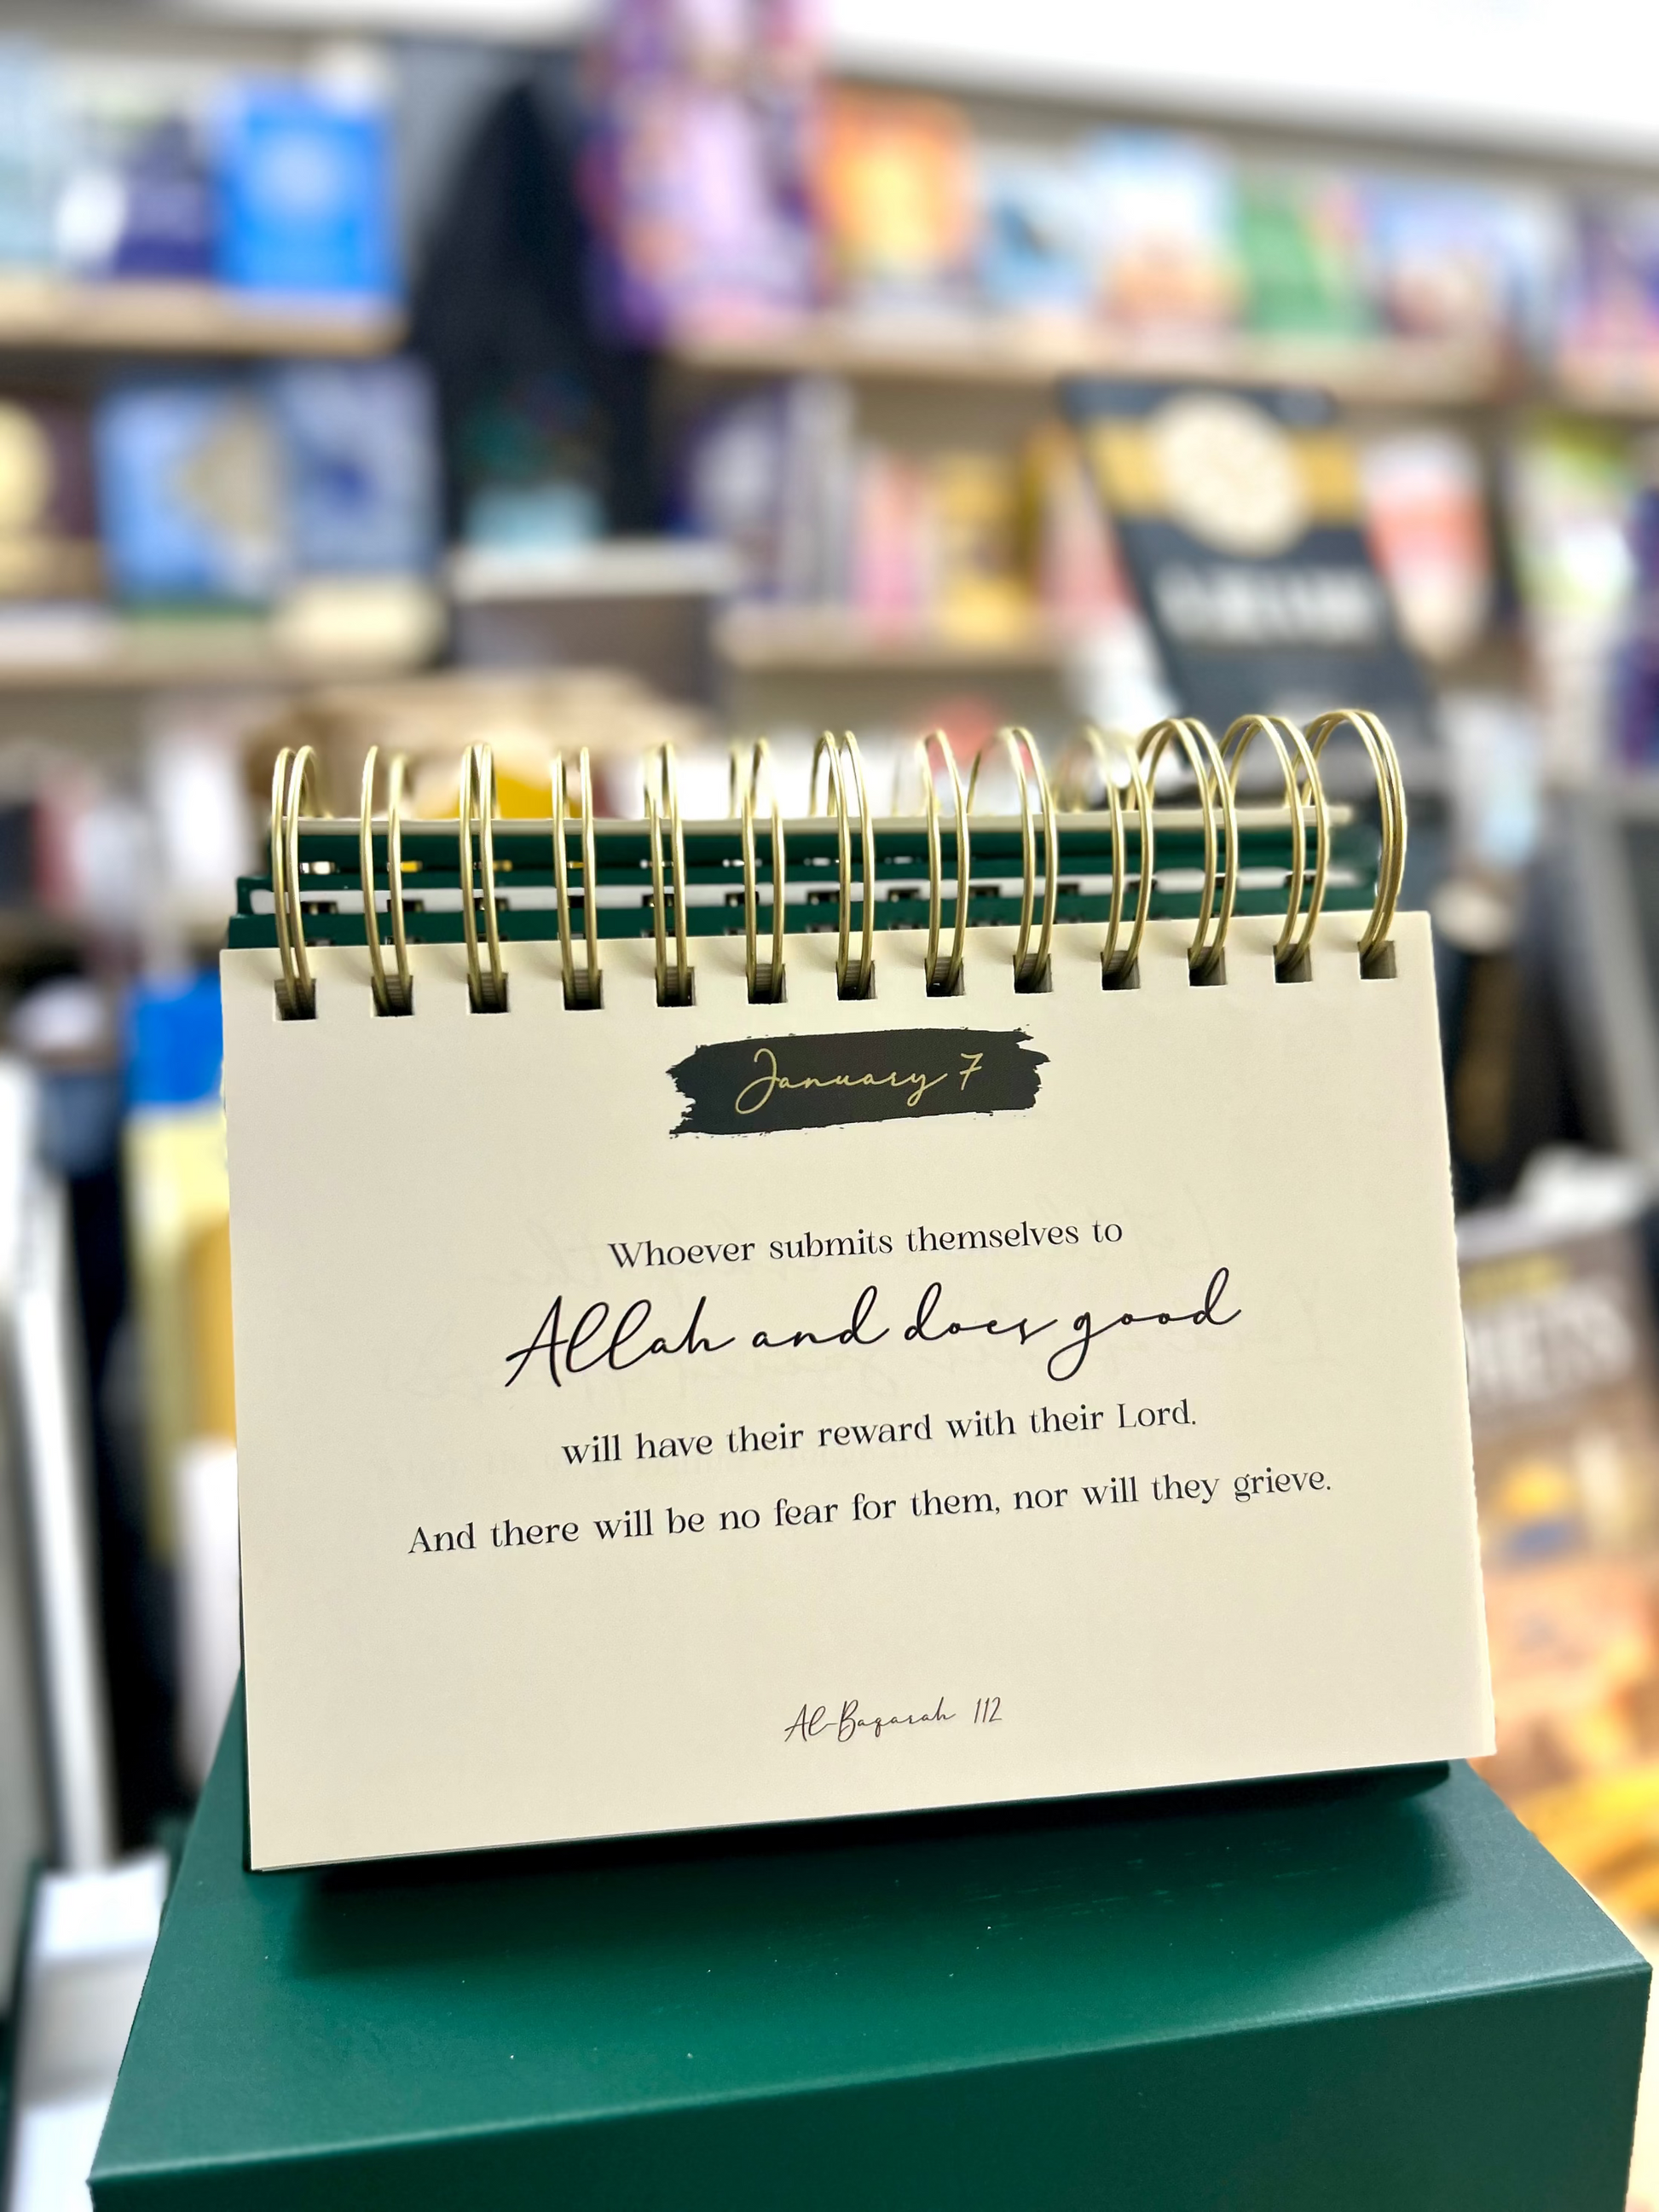 January 7
Whoever submits themselves to
Allah and does good
will have their reward with their Lord.
And there will be no fear for them, nor will they grieve.
Al-Baqarah 112